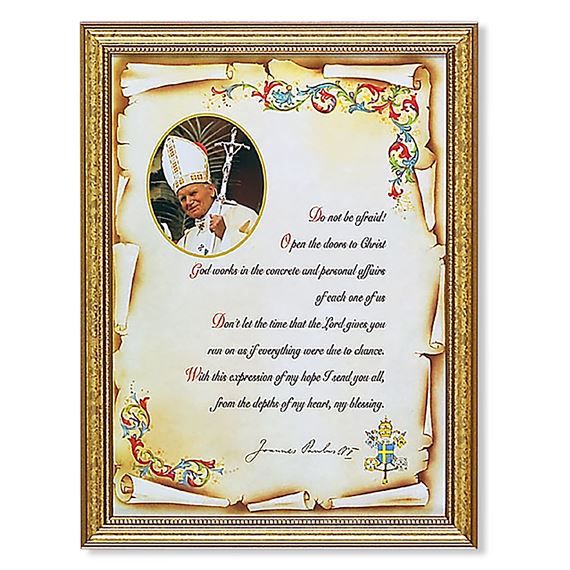 Do not be afraid!
Open the doors to Christ
God works in the concrete and personal affairs
of each one of us
Don't let the time that the Lord gives you
run on as if everything were due to chance.
With this expression of my hope I send you all,
from the depths of my heart, my blessing.
Joannes Paulus II